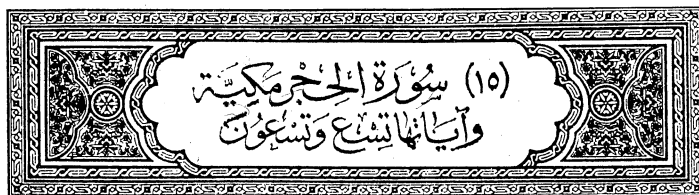 (١٥) سُورَة الحِجْر مَكيَّة
وَآيَاتهَا تِسْع وَتسْعُونَ